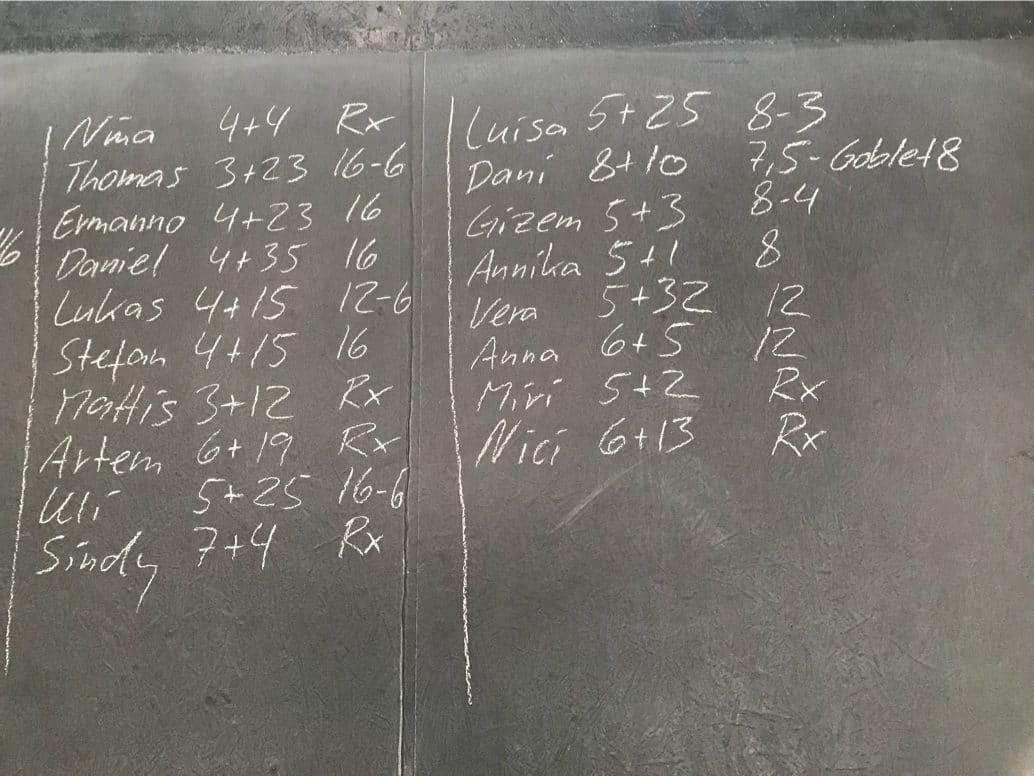 16
Nina 4+4 Rx
Thomas 3+23 16-6
Ermanno 4+23 16
Daniel 4+35 16
Lukas 4+15 12-6
Stefan 4+15 16
Mattis 3+12 Rx
Artem 6+19 Rx
Uli 5+25 16-6
Sindy 7+4 Rx
Luisa 5+25 8-3
Dani 8+10 7,5-Goblet 8
Gizem 5+3 8-4
Annika 5+1 8
Vera 5+32 12
Anna 6+5 12
Miri 5+2 Rx
Nici 6+13 Rx